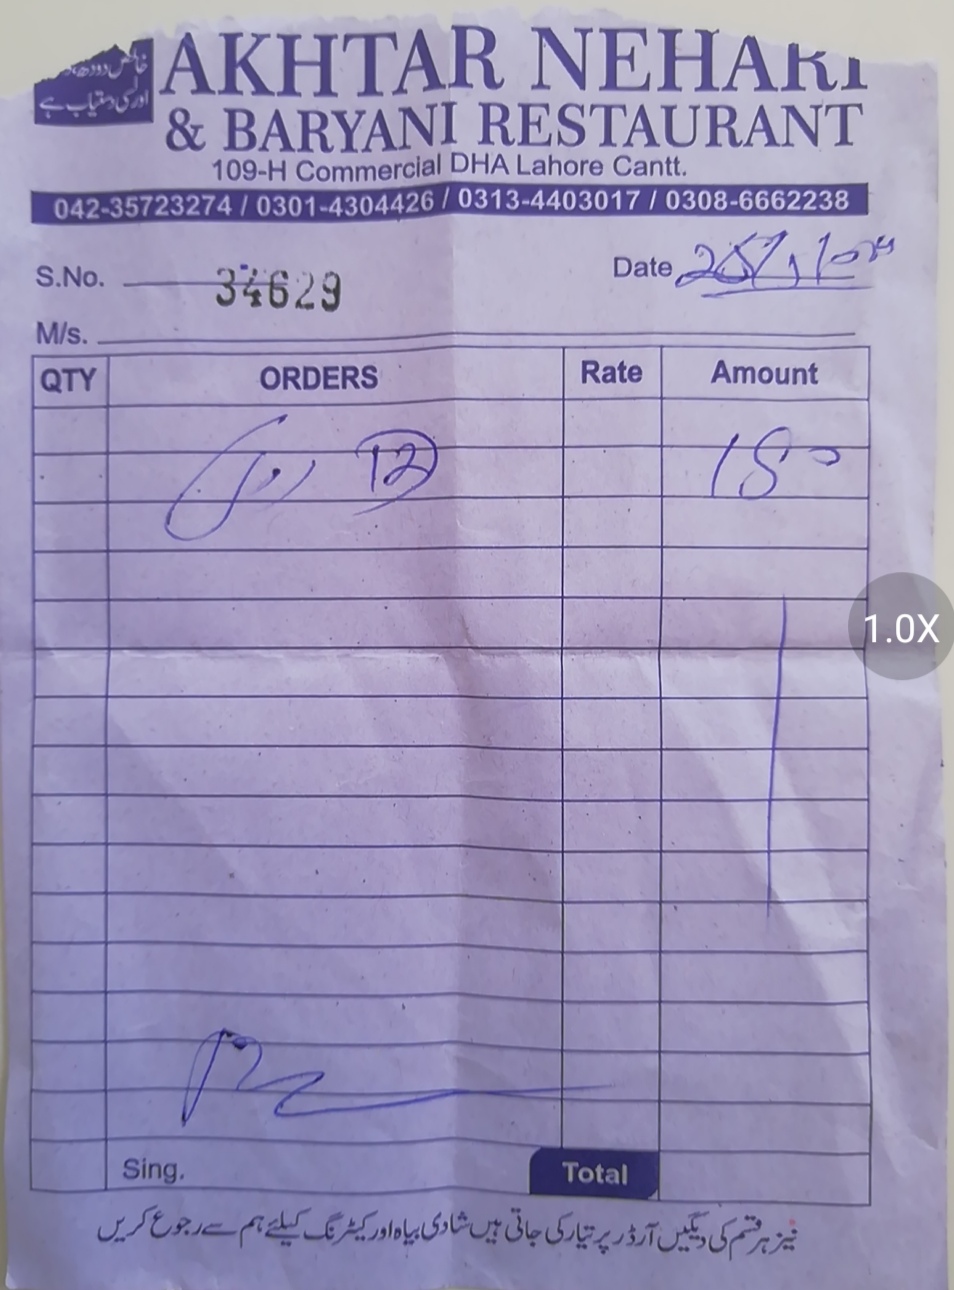 خالص دودھ
اور لسی دستیاب ہے
AKHTAR NEHARI
& BARYANI RESTAURANT
109-H Commercial DHA Lahore Cantt.
042-35723274 / 0301-4304426 / 0313-4403017 / 0308-6662238
S.No. 34629
Date
M/s.
QTY ORDERS Rate Amount
12 180
Sing. Total
نیز ہر قسم کی دیگیں آرڈر پر تیار کی جاتی ہیں شادی بیاہ اور کیٹرنگ کیلئے ہم سے رجوع کریں
1.0X